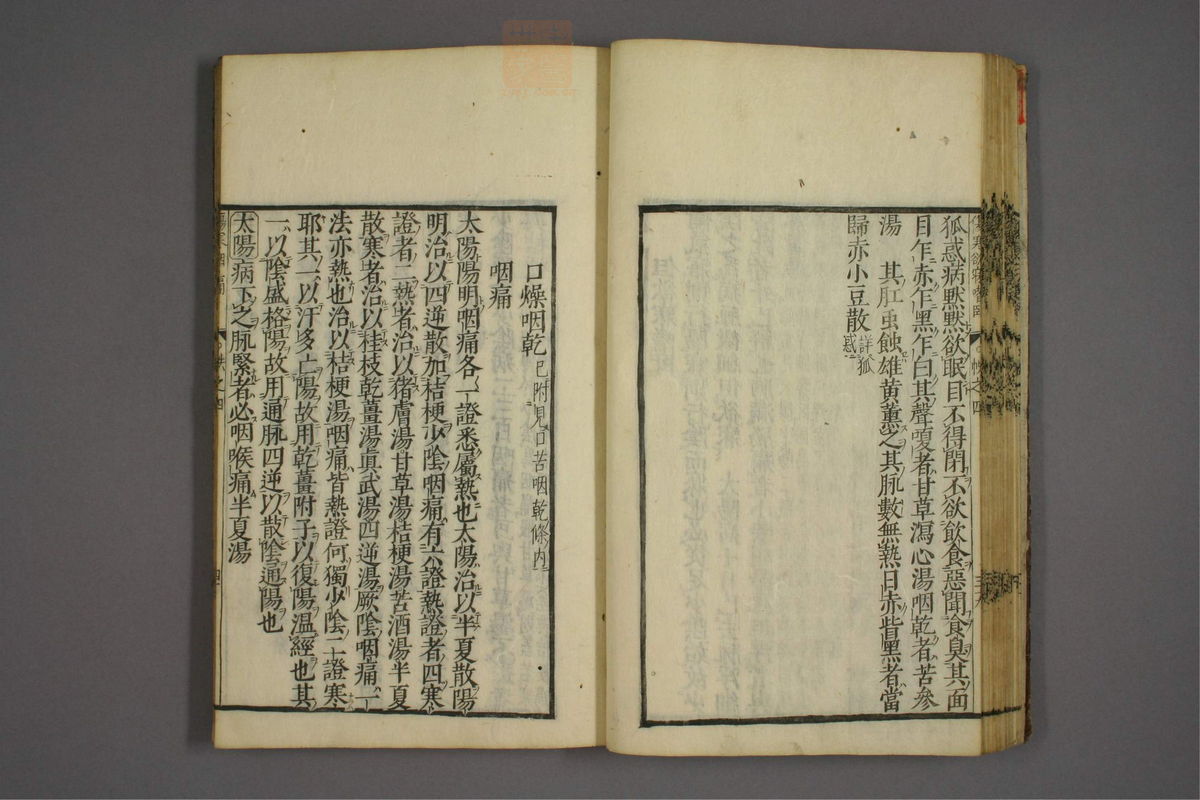 狐惑病默默欲眠目不得閉不欲飲食惡聞食臭其面
目乍赤乍黑乍白其聲嗄者甘草瀉心湯咽乾者苦參
湯 其肛虫蝕雄黄薰之其脉數無熱目赤眥黑者當
歸赤小豆散詳狐惑
口燥咽乾已附見口苦咽乾條内
咽痛
太陽陽明咽痛各一證悉屬熱也太陽治以半夏散陽
明治以四逆散加桔梗少陰咽痛有六證熱證者四寒
證者二熱者治以猪膚湯甘草湯桔梗湯苦酒湯半夏
散寒者治以桂枝乾薑湯眞武湯四逆湯厥陰咽痛一
法亦熱也治以桔梗湯咽痛皆熱證何獨少陰二證寒
耶其一以汗多亡陽故用乾薑附子以復陽温經也其
一以陰盛格陽故用通脉四逆以散陰通陽也
太陽病下之脉緊者必咽喉痛半夏湯